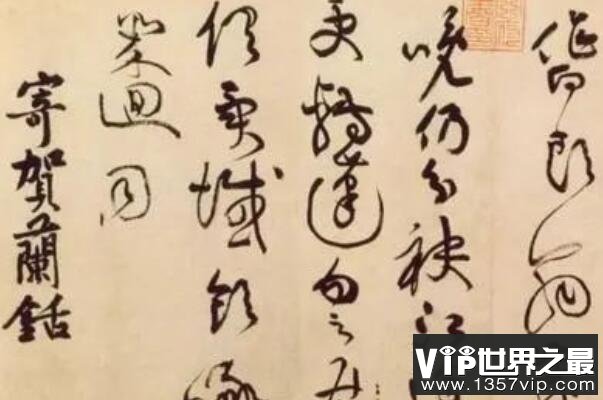 作白頭翁歲
晚仍分袂江邊
更轉蓬勿
俱異域飲啄
幾迴同
寄賀蘭銛
VIP世界之最
www.1357vip.com